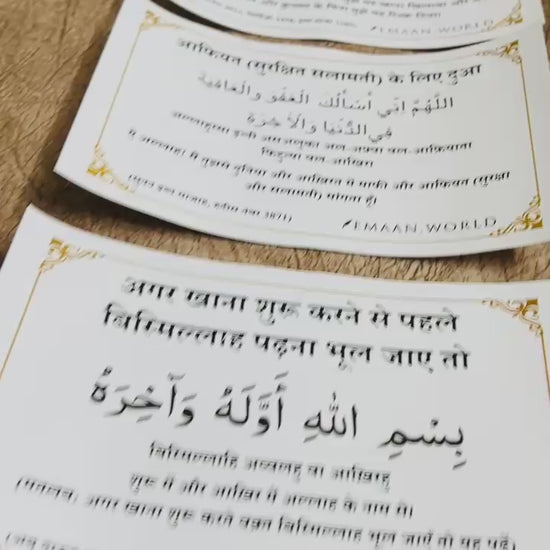 आफियत (सुरक्षित सलामती) के लिए दुआ
اللَّهُمَّ إِنِّي أَسْأَلُكَ الْعَفْوَ وَالْعَافِيَةَ
فِي الدُّنْيَا وَالْآخِرَةِ
अल्लाहुम्मा इन्नी अल-अफ्वा वल-आफ़ियाता
फिद्दुन्या वल-आखिरा
ऐ अल्लाह! मैं तुझसे दुनिया और आखिरत में माफी और आफियत (सुरक्षा
और सलामती) मांगता हूँ।
EMAAN.WORLD
EMAAN.WORLD
अगर खाना शुरू करने से पहले
बिस्मिल्लाह पढ़ना भूल जाए तो
بِسْمِ اللهِ أَوَّلَهُ وَآخِرَهُ
बिस्मिल्लाहि अव्वलहु वा आखिरहु
शुरू में और आखिर में अल्लाह के नाम से।
(मतलब: अगर खाना शुरू करते वक़्त बिस्मिल्लाह भूल जाएँ तो यह पढ़ें)